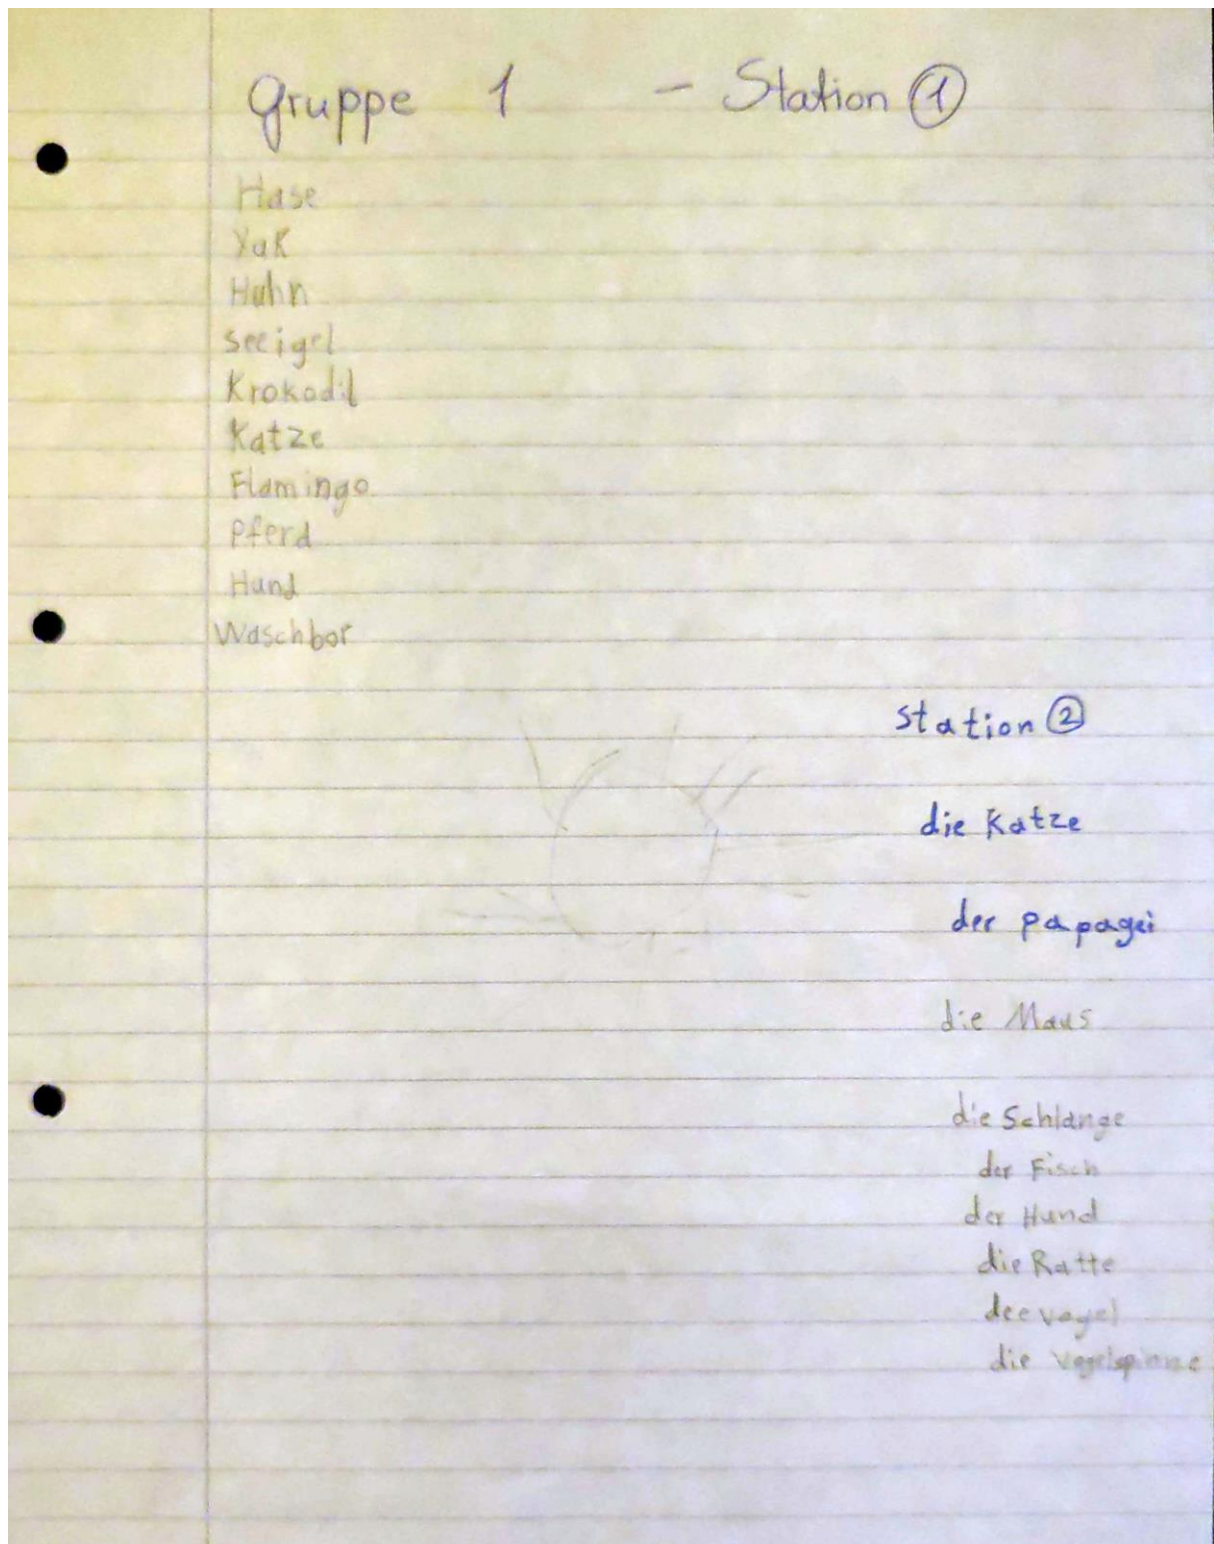 Gruppe 1 - Station 1
Hase
Yak
Huhn
seeigel
Krokodil
Katze
Flamingo
Pferd
Hund
Waschbor
Station 2
die Katze
der papagei
die Maus
die Schlange
der Fisch
der Hund
die Ratte
der vogel
die Vogelspinne